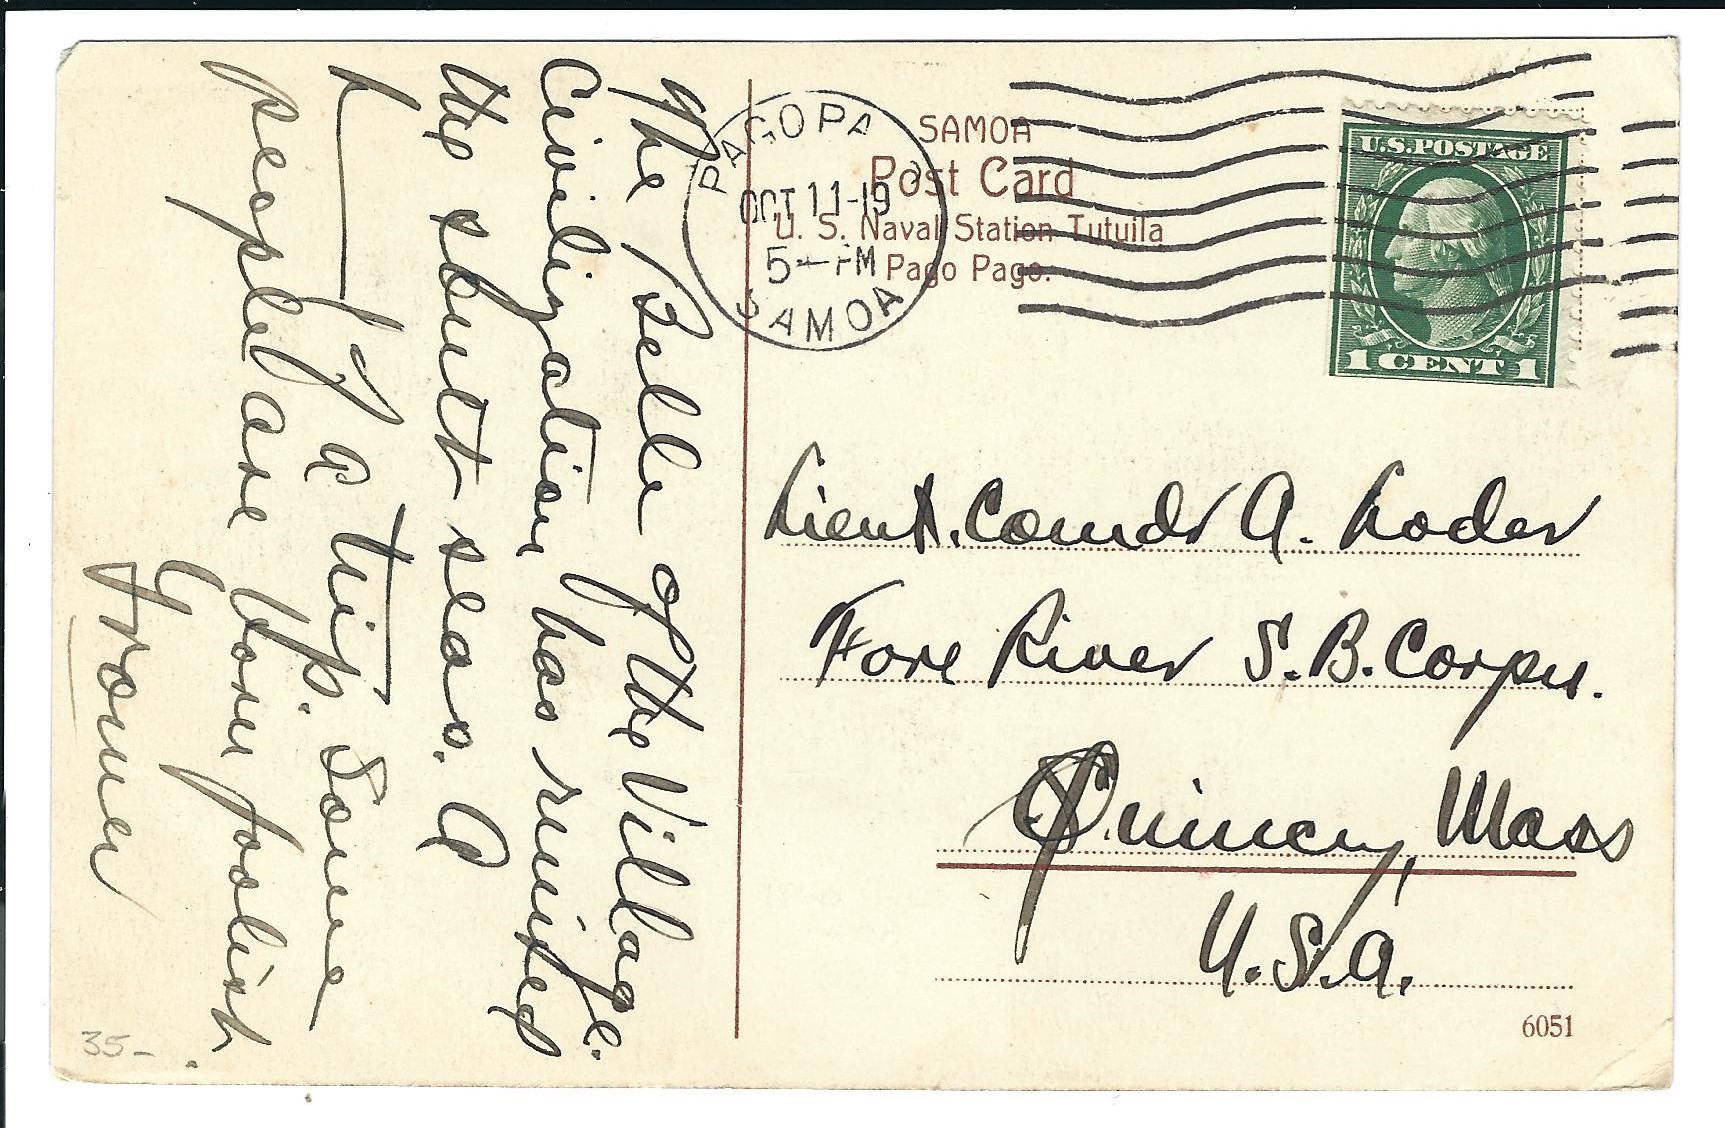 The Belle of the Village.
Civilization has ruined
the south seas. A
h— of a trip. Some
people are born foolish.
Gromer
PAGO PA
OCT 11-19
5-PM
SAMOA
SAMOA
Post Card
U. S. Naval Station Tutuila
Pago Pago.
U.S. POSTAGE
1 CENT 1
Lieut. Comdr A. Loder
Fore River S. B. Corpn.
Quincy, Mass
U.S.A.
6051
35-